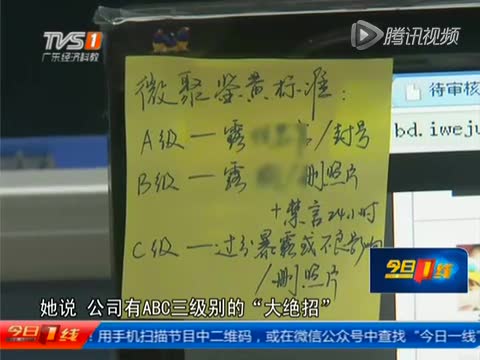 TVS1
广东经济科教
腾讯视频
微聚鉴黄标准：
A级—露 /封号
B级—露 删照片
+禁言24小时
C级—过分暴露或不良影响
/删照片
待审核
bd.iweju
今日一线
她说 公司有ABC三级别的“大绝招”
今日一线
！用手机扫描节目中二维码，或在微信公众号中查找“今日一线”